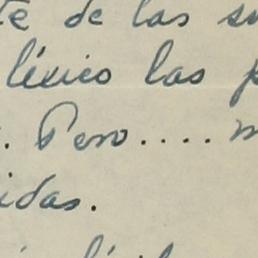 te de las su
léxico las p
. Pero..... m
idas.